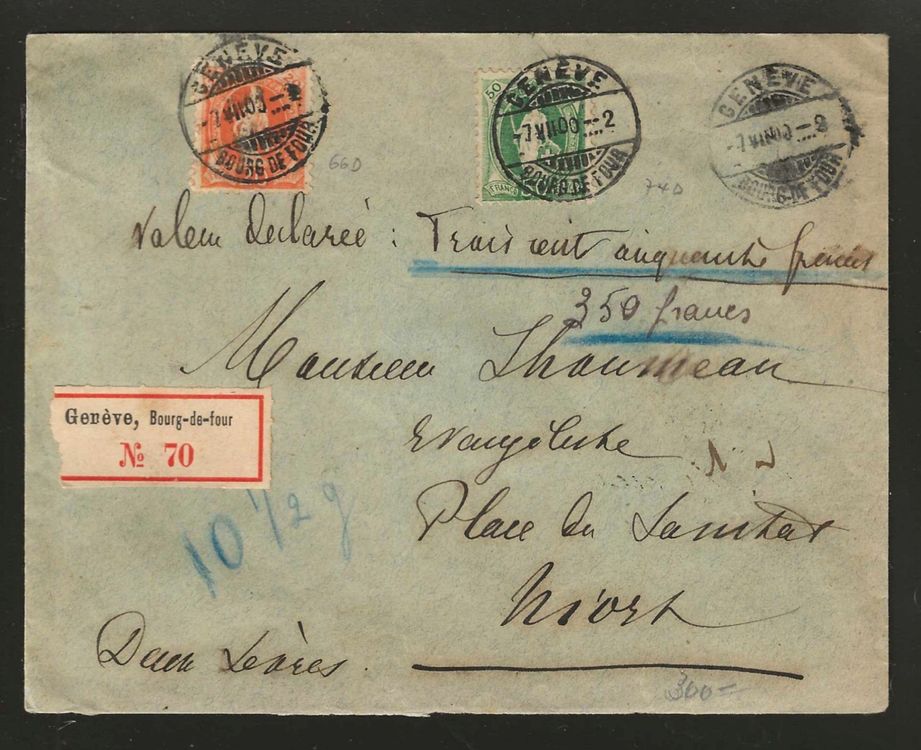 GENÈVE
-7.VII.00-2
BOURG DE FOUR
66D
50
FRANCO
GENÈVE
-7.VII.00-2
BOURG DE FOUR
74D
GENÈVE
-7.VII.00-2
BOURG-DE-FOUR
Valeur declarée : Trois cent cinquante francs
350 francs
Monsieur Lhoumeau
Evangéliste
Genève, Bourg-de-four
№ 70
10 1/2 g
Place du
Niort
Deux Sèvres.
300=